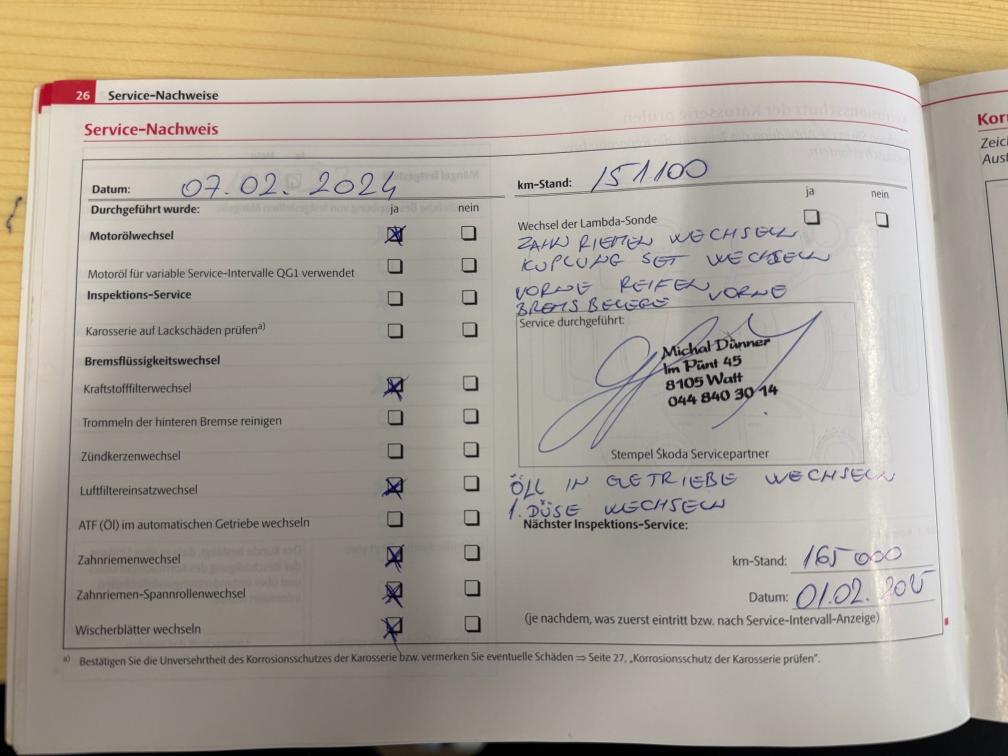 26 Service-Nachweise
Service-Nachweis
Datum: 07.02.2024
km-Stand: 151.100
Durchgeführt wurde: ja nein
ja nein
Motorölwechsel
Wechsel der Lambda-Sonde
ZAHN RIEMEN WECHSELN
Motoröl für variable Service-Intervalle QG1 verwendet
KUPLUNG SET WECHSELN
Inspektions-Service
VORNE REIFEN
BREMSBELEGE VORNE
Karosserie auf Lackschäden prüfen a)
Service durchgeführt:
Michal Dünner
Im Pünt 45
8105 Watt
044 840 30 14
Bremsflüssigkeitswechsel
Kraftstofffilterwechsel
Trommeln der hinteren Bremse reinigen
Zündkerzenwechsel
Stempel Škoda Servicepartner
Luftfiltereinsatzwechsel
ÖLL IN GETRIEBE WECHSELN
1. DÜSE WECHSELN
ATF (Öl) im automatischen Getriebe wechseln
Nächster Inspektions-Service:
Zahnriemenwechsel
km-Stand: 165 000
Zahnriemen-Spannrollenwechsel
Datum: 01.02.2025
Wischerblätter wechseln
(je nachdem, was zuerst eintritt bzw. nach Service-Intervall-Anzeige)
a) Bestätigen Sie die Unversehrtheit des Korrosionsschutzes der Karosserie bzw. vermerken Sie eventuelle Schäden ⇒ Seite 27, „Korrosionsschutz der Karosserie prüfen".